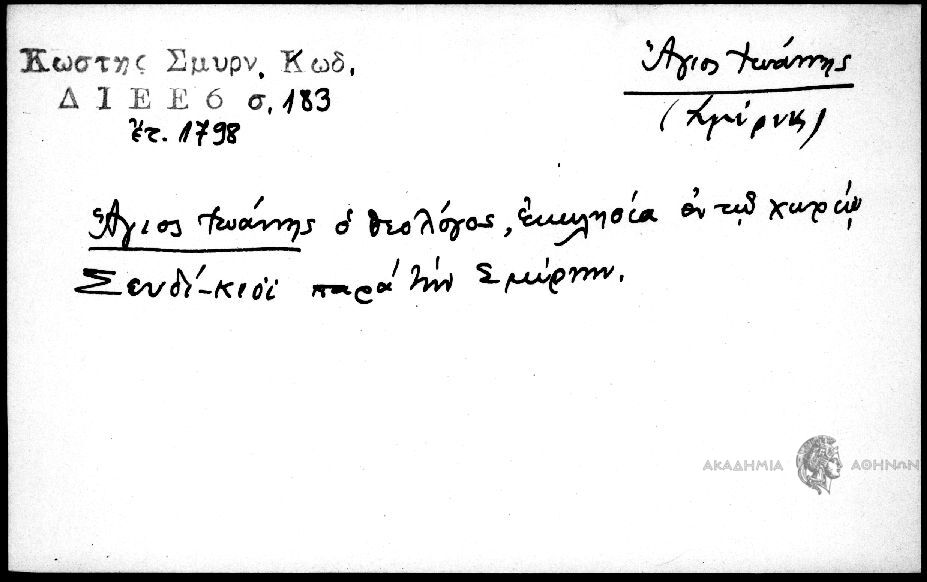 Κωστης Σμυρν. Κωδ.
Δ Ι Ε Ε 6 σ. 183
ἔτ. 1798
Ἅγιος Ἰωάννης
(Σμύρνης)
Ἅγιος Ἰωάννης ὁ θεολόγος, ἐκκλησία ἐν τῷ χωρίῳ
Σενδί-κιοϊ παρά τήν Σμύρνην.
ΑΚΑΔΗΜΙΑ ΑΘΗΝΩΝ